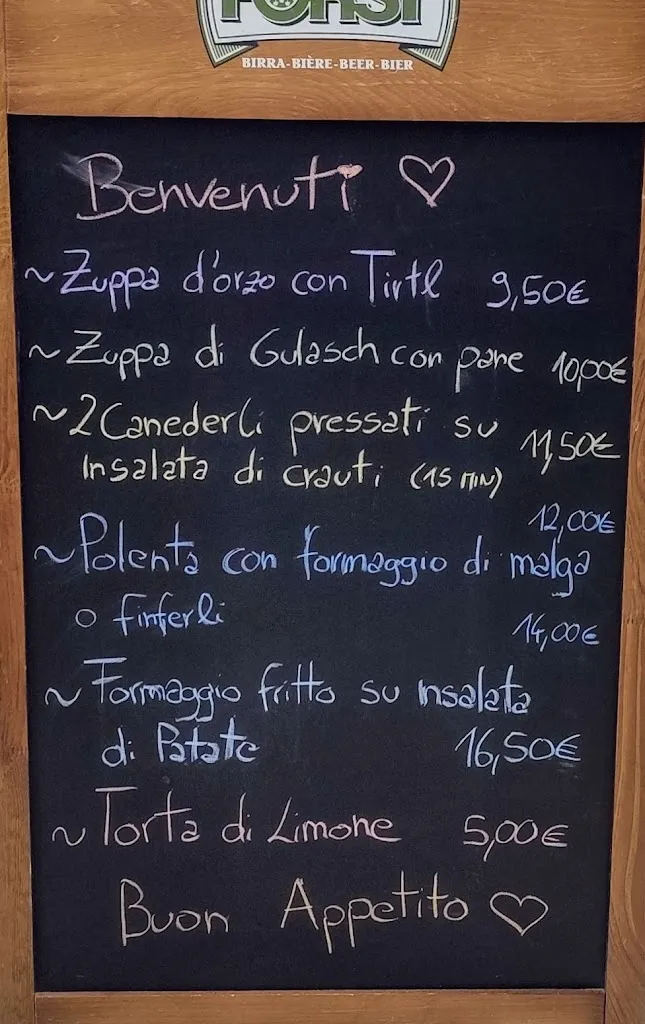 FORST
BIRRA-BIÈRE-BEER-BIER
Benvenuti ♡
~ Zuppa d'orzo con Tirtl 9,50€
~ Zuppa di Gulasch con pane 10,00€
~ 2 Canederli pressati su 11,50€
Insalata di crauti (15 MIN)
12,00€
~ Polenta con formaggio di malga
o finferli 14,00€
~ Formaggio fritto su insalata
di Patate 16,50€
~ Torta di Limone 5,00€
Buon Appetito ♡